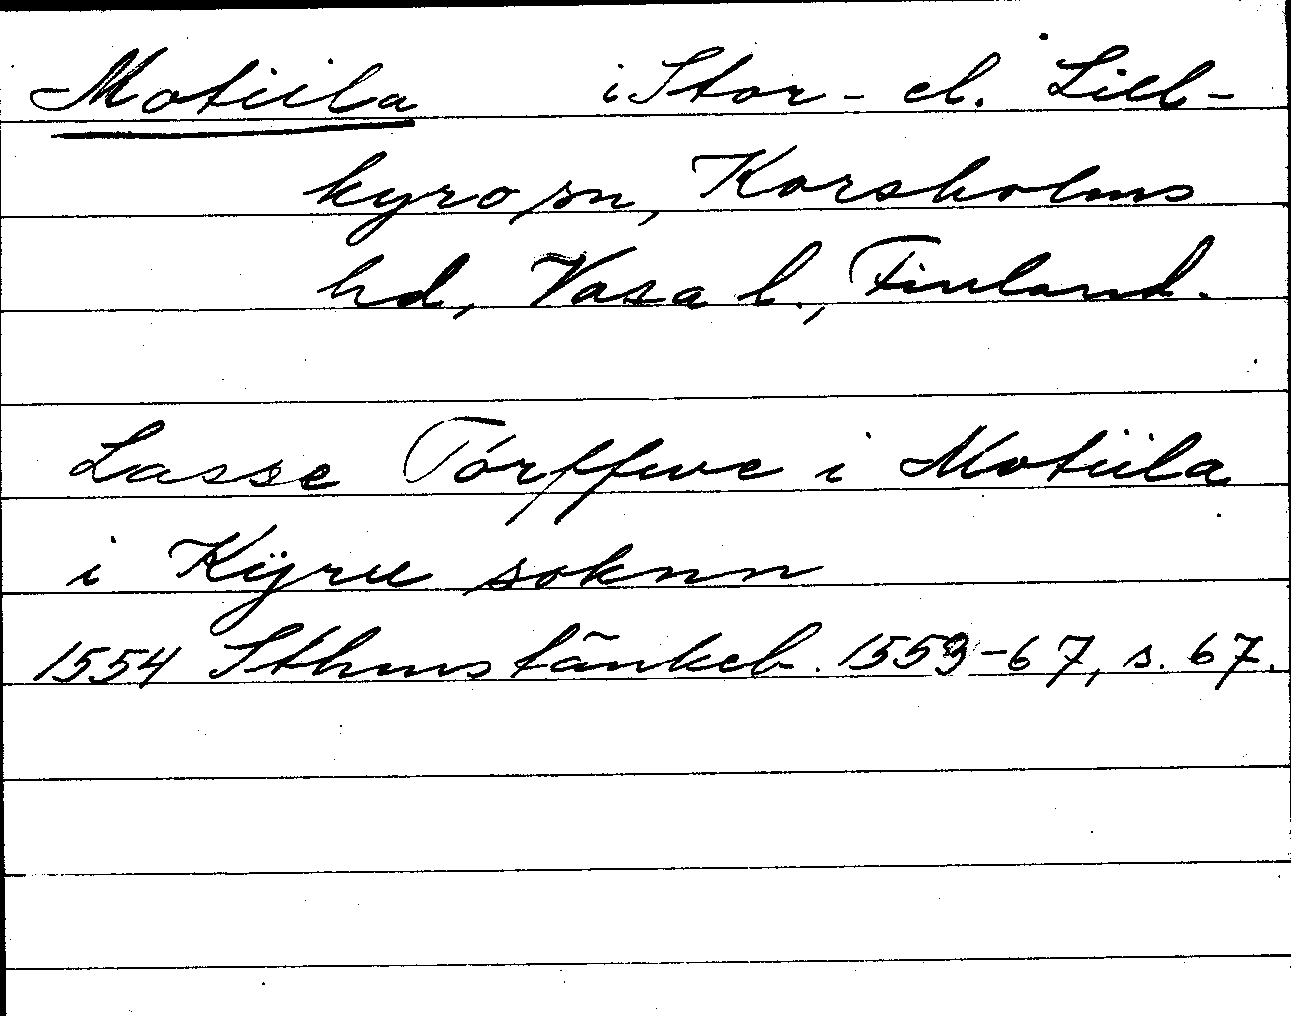 Motiila i Stor- el. Lill-
kyro sn, Korsholms
hd, Vasa l., Finland.
Lasse Törffwe i Motiila
i Kÿru soknn
1554 Sthms tänkeb. 1553-67, s. 67.